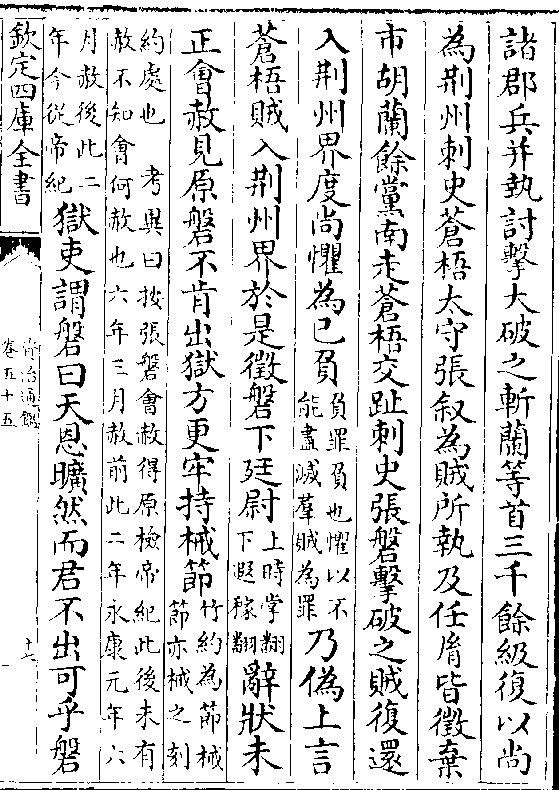 諸郡兵并埶討擊大破之斬蘭等首三千餘級復以尚
為荆州刺史蒼梧太守張叙為賊所執及任胤皆徵棄
市胡蘭餘黨南走蒼梧交趾刺史張磐擊破之賊復還
入荆州界度尚懼為己負負罪負也懼以不能盡滅羣賊為罪乃偽上言
蒼梧賊入荆州界於是徵磐下廷尉上時掌翻下遐稼翻辭狀未
正會赦見原磐不肯出獄方更牢持械節竹約為節械節亦械之刻
約處也　考異曰按張磐會赦得原檢帝紀此後未有赦不知會何赦也六年三月赦前此二年永康元年六
月赦後此二年今從帝紀獄吏謂磐曰天恩曠然而君不出可乎磐
欽定四庫全書
資治通鑑
卷五十五
十六